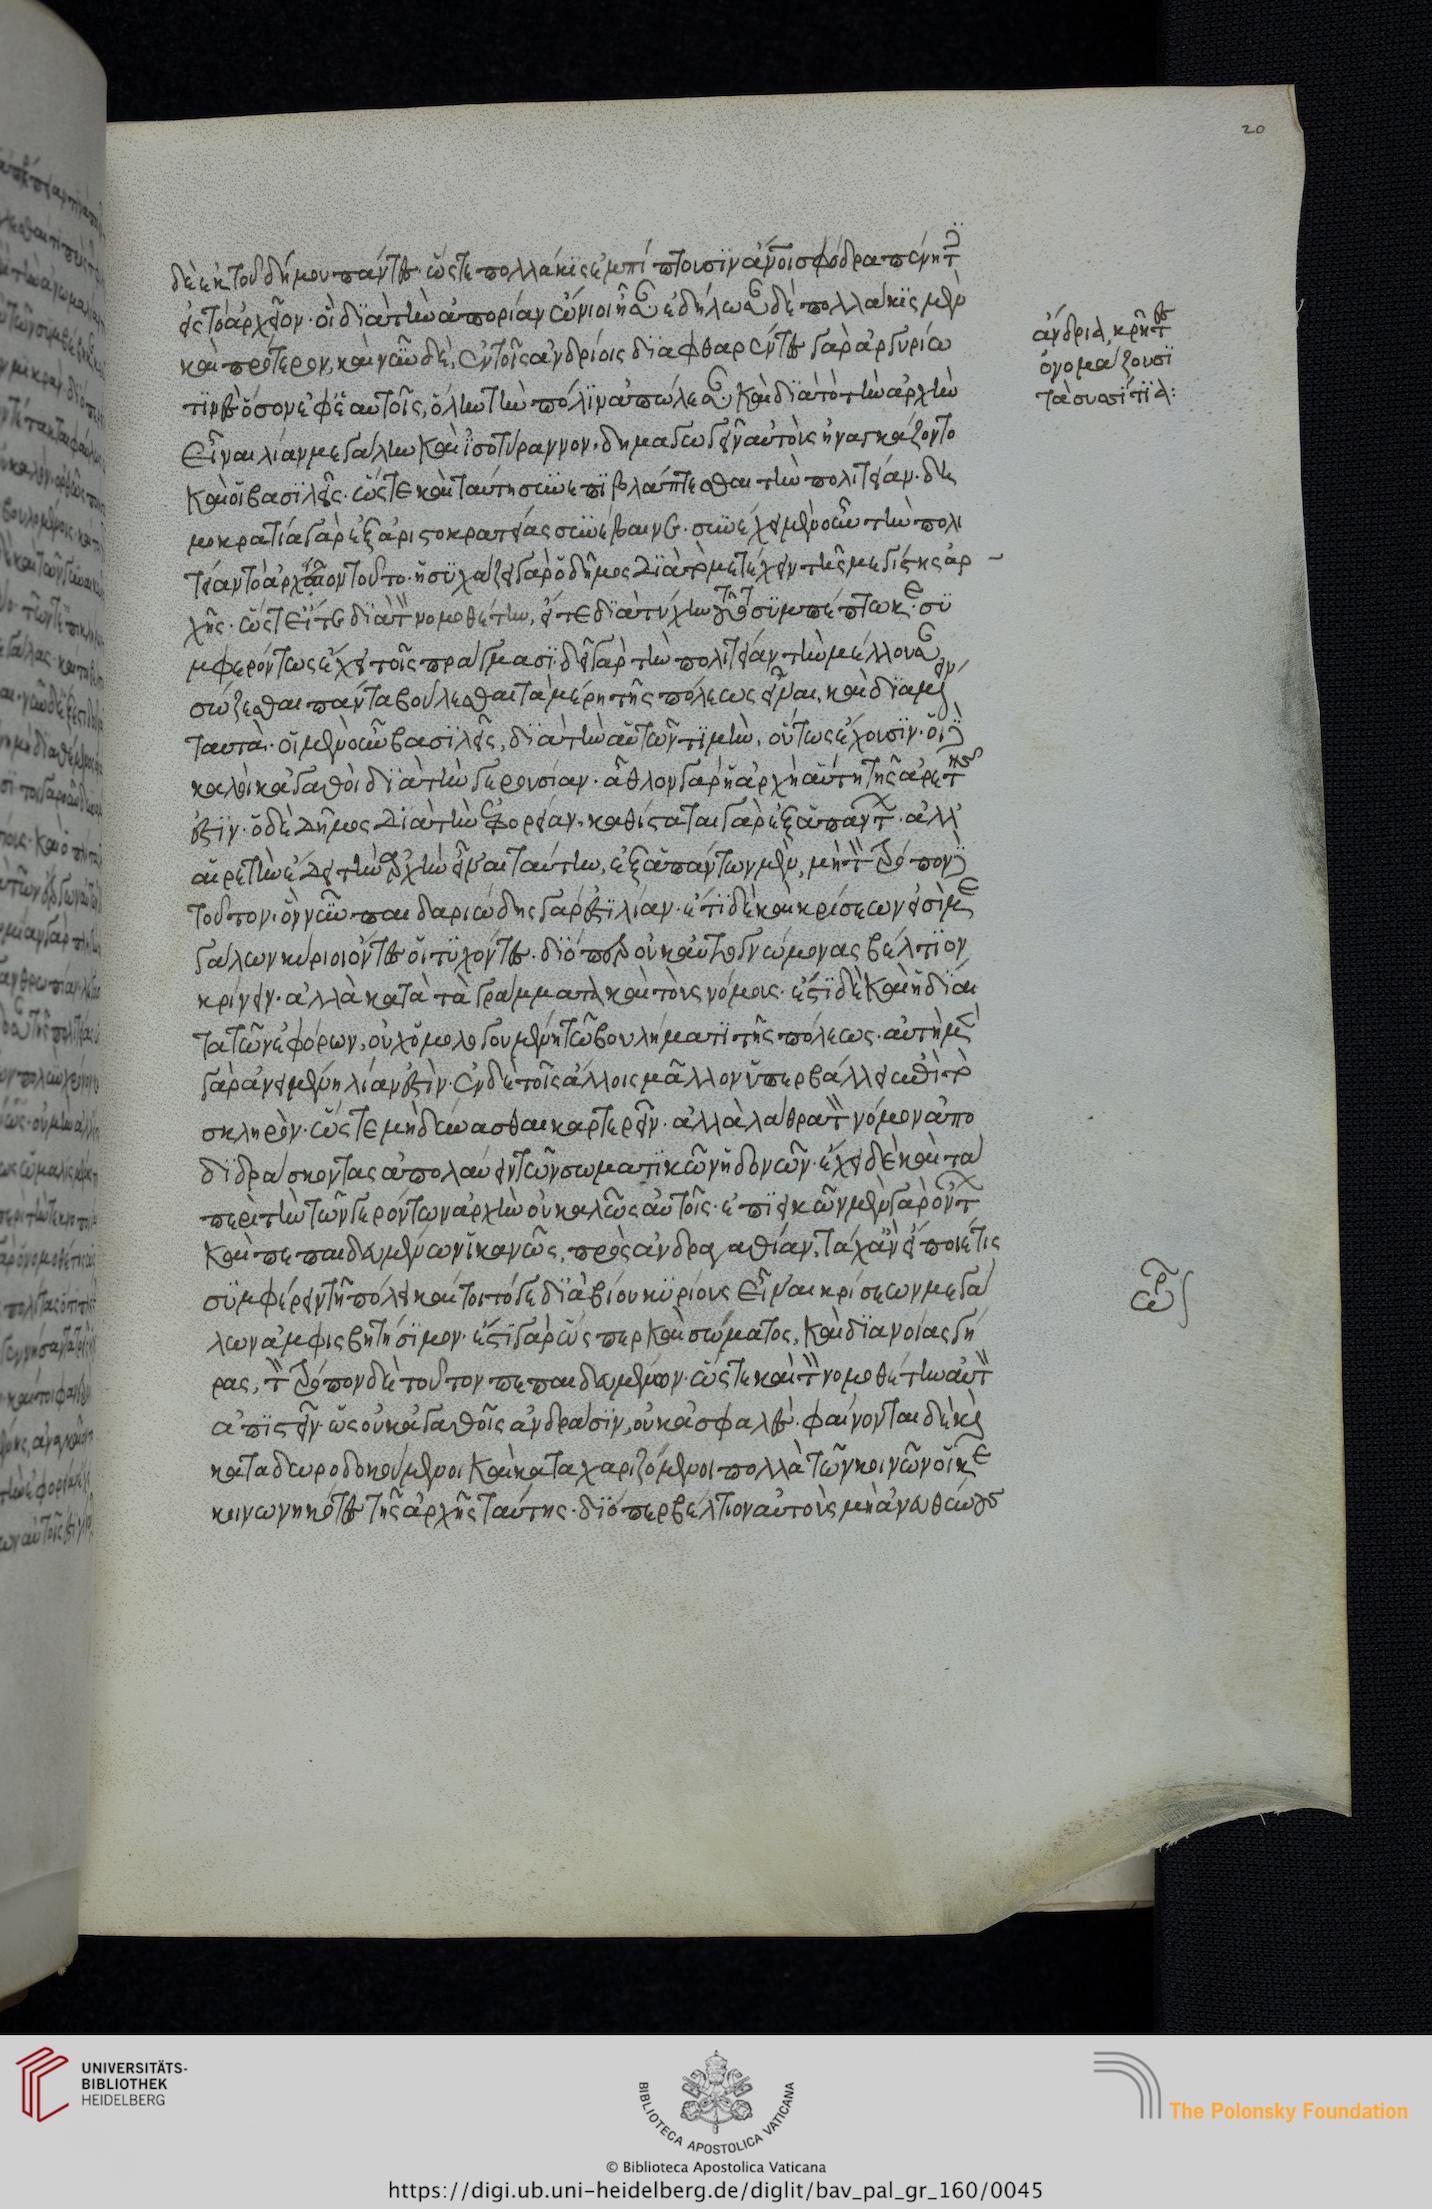 20
δὲ ἐκ τοῦ δήμου πάντες· ὥστε πολλάκις ἐμπίπτουσιν ἄνοι σφόδρα πένητες
εἰς τὸ ἀρχεῖον· οἳ διὰ τὴν ἀπορίαν ὤνιοι ἦσαν· ἐδήλωσαν δὲ πολλάκις μὲν
καὶ πρότερον, καὶ νῦν δὲ, ἐν τοῖς ἀνδρίοις διαφθαρέντες γὰρ ἀργυρίω
τινὲς ὅσον ἐφ' ἑαυτοῖς, ὅλην τὴν πόλιν ἀπώλεσαν· καὶ διὰ τὸ τὴν ἀρχὴν
εἶναι λίαν μεγάλην καὶ ἰσοτύραννον, δημαγωγεῖν αὐτοὺς ἠναγκάζοντο
καὶ οἱ βασιλεῖς· ὥστε καὶ ταύτη συνεπιβλάπτεσθαι τὴν πολιτείαν· δη
μοκρατία γὰρ ἐξ ἀριστοκρατείας συνέβαινε· συνέχει μὲν οὖν τὴν πολι
τείαν τὸ ἀρχεῖον τοῦτο· ἡσυχάζει γὰρ ὁ δῆμος διὰ τὸ μετέχειν τῆς μεγίστης ἀρ
χῆς· ὥστ' εἴτε διὰ τὸν νομοθέτην, εἴτε διὰ τύχην τοῦτο συμπέπτωκε· συ
μφερόντως ἔχει τοῖς πράγμασι· δεῖ γὰρ τὴν πολιτείαν τὴν μέλλουσαν
σώζεσθαι πάντα βούλεσθαι τὰ μέρη τῆς πόλεως εἶναι, καὶ διαμένειν
ταυτά· οἱ μὲν οὖν βασιλεῖς, διὰ τὴν αὑτῶν τιμὴν, οὕτως ἔχουσιν· οἱ δὲ
καλοὶ κἀγαθοὶ διὰ τὴν γερουσίαν· ἆθλον γὰρ ἡ ἀρχὴ αὕτη τῆς ἀρετῆς
ἐστιν· ὁ δὲ δῆμος διὰ τὴν ἐφορείαν· καθίσταται γὰρ ἐξ ἁπάντων· ἀλλ'
αἱρετὴν ἔδει τὴν ἀρχὴν εἶναι ταύτην, ἐξ ἁπάντων μὲν, μὴ τὸν τρόπον δὲ
τοῦτον· ὃν νῦν· παιδαριώδης γάρ ἐστι λίαν· ἔτι δὲ καὶ κρίσεων εἰσὶ με
γάλων κύριοι ὄντες οἱ τυχόντες· διόπερ οὐκ αὐτογνώμονας βέλτιον
κρίνειν· ἀλλὰ κατὰ τὰ γράμματα καὶ τοὺς νόμους· ἔστι δὲ καὶ ἡ δίαι
τα τῶν ἐφόρων, οὐχ ὁμολογουμένη τῶ βουλήματι τῆς πόλεως· αὐτὴ μὲν
γὰρ ἀνειμένη λίαν ἐστίν· ἐν δὲ τοῖς ἄλλοις μᾶλλον ὑπερβάλλει ἐπὶ τὸ
σκληρὸν· ὥστε μὴ δύνασθαι καρτερεῖν· ἀλλὰ λάθρα τὸν νόμον ἀπο
διδράσκοντας ἀπολαύειν τῶν σωματικῶν ἡδονῶν· ἔχει δὲ καὶ τὰ
περὶ τὴν τῶν γερόντων ἀρχὴν οὐ καλῶς αὐτοῖς· ἐπιεικῶν μὲν γὰρ ὄντων
καὶ πεπαιδευμένων ἱκανῶς, πρὸς ἀνδραγαθίαν, τάχ' ἂν εἴποιέ τις
συμφέρειν τῆ πόλει καίτοι τό γε διὰ βίου κυρίους εἶναι κρίσεων μεγά
λων ἀμφισβητήσιμον· ἔστι γὰρ ὥσπερ καὶ σώματος, καὶ διανοίας γῆ
ρας, τὸν τρόπον δὲ τοῦτον πεπαιδευμένων· ὥστε καὶ τὸν νομοθέτην αὐτὸν
ἀπιστεῖν· ὡς οὐκ ἀγαθοῖς ἀνδράσιν, οὐκ ἀσφαλές· φαίνονται δὲ καὶ
καταδωροδοκούμενοι καὶ καταχαριζόμενοι πολλὰ τῶν κοινῶν οἱ κε
κοινωνηκότες τῆς ἀρχῆς ταύτης· διόπερ βέλτιον αὐτοὺς μὴ ἀνευθύνους
ἄνδρια, κρῆτες
ὀνομάζουσι
τὰ συσίτια:
UNIVERSITÄTS-
BIBLIOTHEK
HEIDELBERG
BIBLIOTECA APOSTOLICA VATICANA
The Polonsky Foundation
© Biblioteca Apostolica Vaticana
https://digi.ub.uni-heidelberg.de/diglit/bav_pal_gr_160/0045